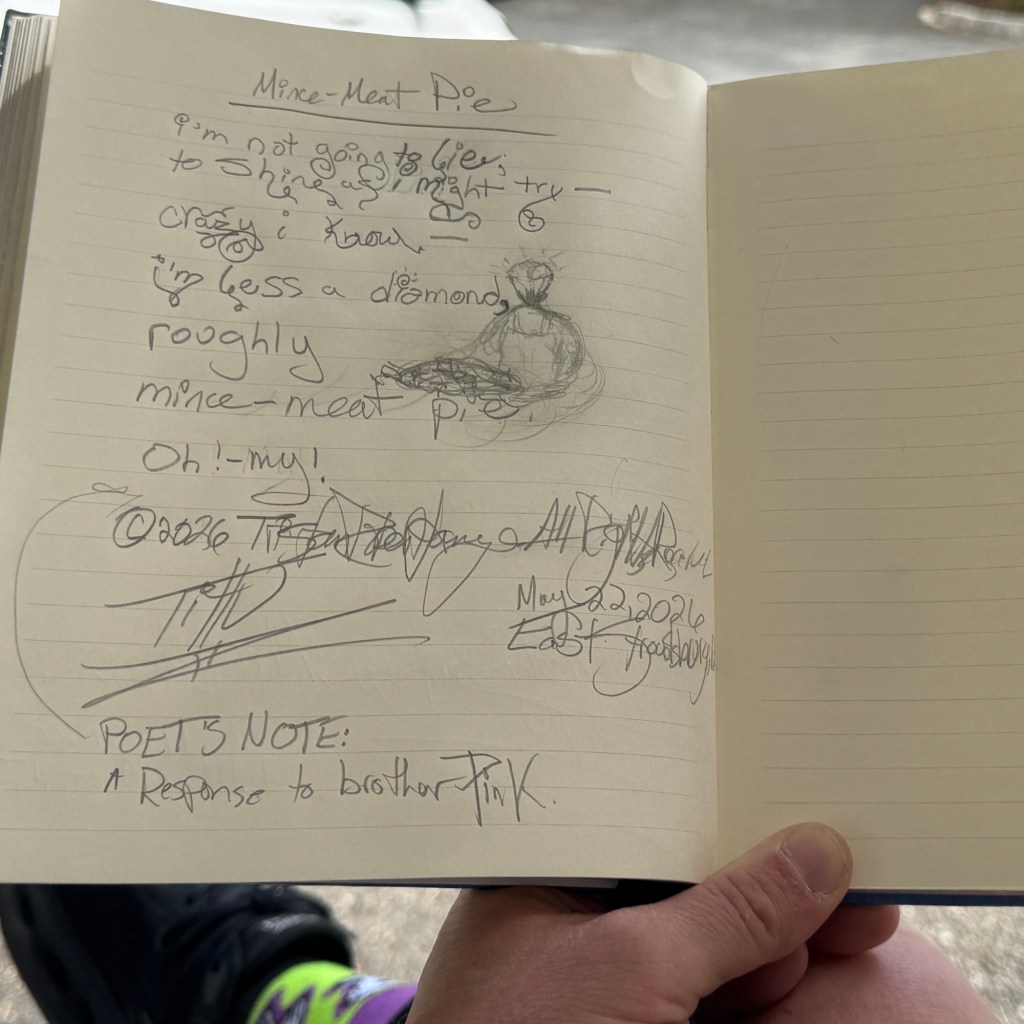 Mince-Meat Pie
i'm not going to lie;
to shine as i might try —
crazy i know —
i'm less a diamond,
roughly
mince-meat pie.
Oh!-my!
©2026 All Rights Reserved
May 22, 2026
East
POET'S NOTE:
A Response to brother Pink.